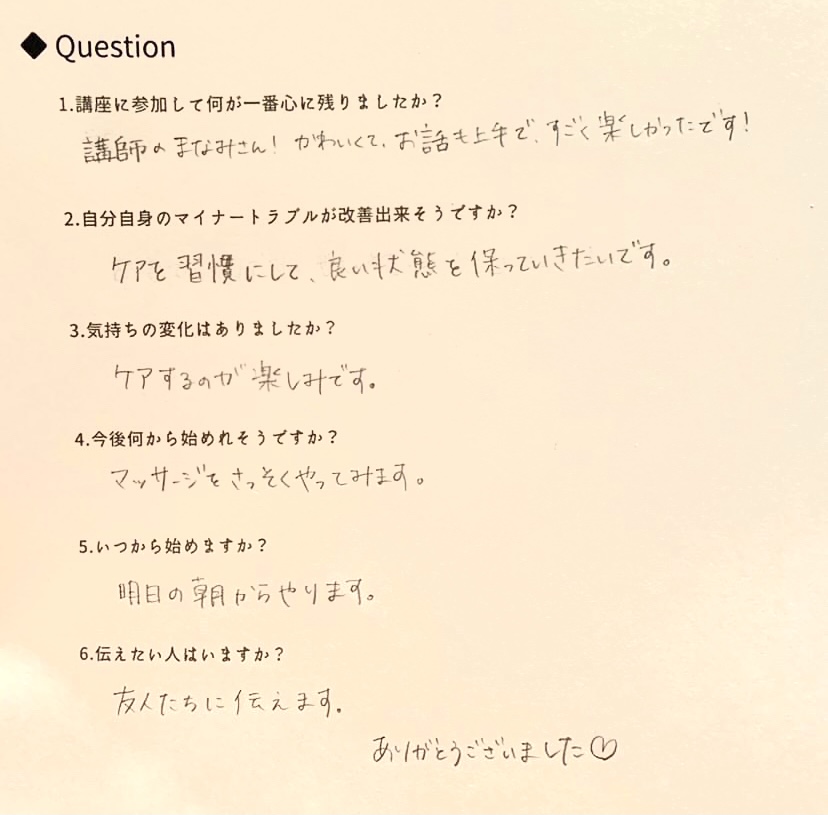 ◆ Question
1.講座に参加して何が一番心に残りましたか？
講師のまなみさん！かわいくて、お話も上手で、すごく楽しかったです！
2.自分自身のマイナートラブルが改善出来そうですか？
ケアを習慣にして、良い状態を保っていきたいです。
3.気持ちの変化はありましたか？
ケアするのが楽しみです。
4.今後何から始めれそうですか？
マッサージをさっそくやってみます。
5.いつから始めますか？
明日の朝からやります。
6.伝えたい人はいますか？
友人たちに伝えます。
ありがとうございました♡